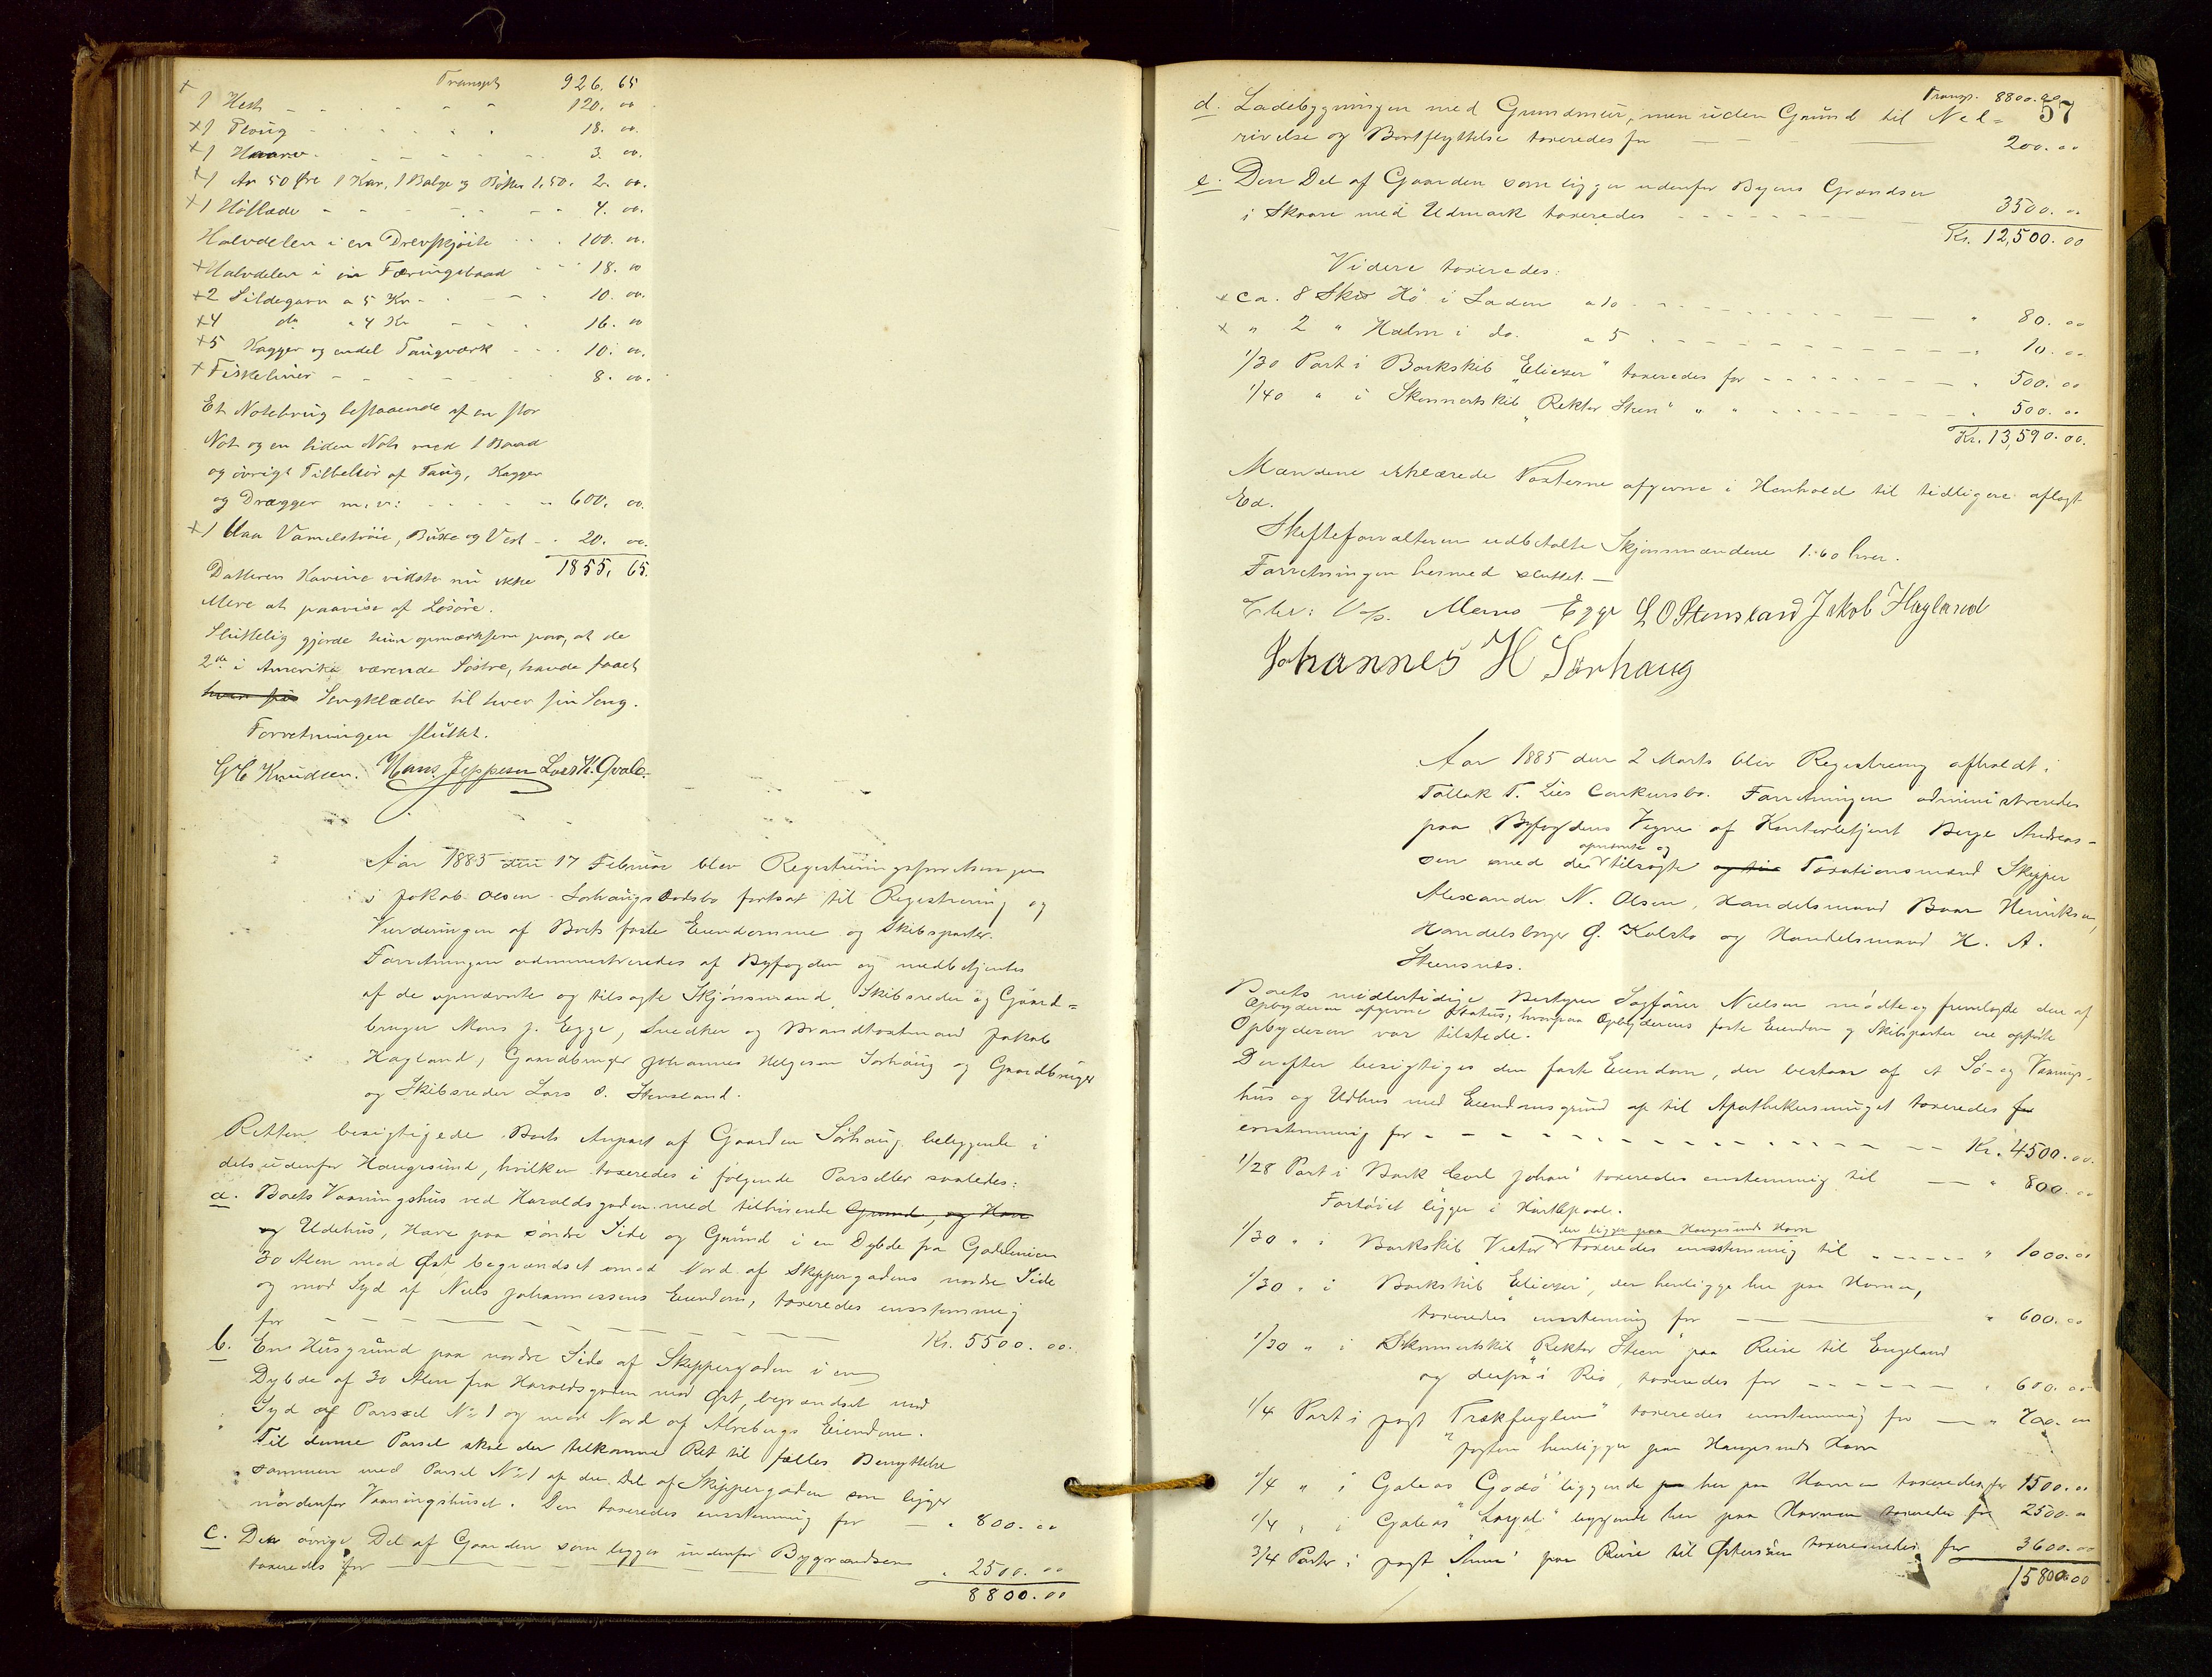 Transpt 926. 65
+ 1 Hest 120. 00
+ 1 Ploug 18. 00.
+ 1 Haarv 3. 00.
+ 1 Am 50 Øre 1 Kar, 1 Balge og Bøtter 1.50. 2. 00.
+ 1 Høslæde 4. 00.
Halvdelen i en Drevskjøite 100. 00.
+ Halvdelen i en Færingsbaad 18. 00
+ 2 Sildegarn a 5 Kr 10. 00.
+ 4 do a 4 Kr 16. 00
+ 5 Kagger og endel Taugværk 10. 00.
+ Fiskeliner 8. 00.
Et Notebrug bestaaende af en stor
Not og en liden Not med 1 Baad
og øvrigt Tilbehør af Taug, Kagger
og Drægger m.v: 600. 00.
+ 1 blaa Vamelstrøie, Buxe og Vest 20. 00.
1855, 65.
Datteren Karine vidste nu ikke
Mere at paavise af Løsøre.
Sluttelig gjorde hun opmærksom paa, at de
2de i Amerika værende Søstre, havde faaet
hver sin Sengklæder til hver sin Seng.
Forretningen sluttet.
G C Knudsen. Hans Jeppesen Lars K. Qvale.
Aar 1885 den 17 Februar blev Registreringsforretningen
i Jakob Olsen Sørhaugs Dødsbo fortsat til Registrering og
Vurderingen af Boets faste Eiendomme og Skibsparter.
Forretningen administreredes af Byfogden og medbetjentes
af de opnævnte og tilsagte Skjønsmænd, Skibsreder og Gaard=
bruger Mons J. Egge, Snedker og Brandtaxtmand Jakob
Hagland, Gaardbruger Johannes Helgesen Sørhaug og Gaardbruger
og Skibsreder Lars O. Stensland.
Retten besigtigede Boets Anpart af Gaarden Sørhaug beliggende i
dels udenfor Haugesund, hvilken taxeredes i følgende Parseller saaledes:
a. Boets Vaaningshus ved Haraldsgaden med tilhørende Grund, og Have
og Udehus, Have paa søndre Side og Grund i en Dybde fra Gadelinien
30 Alen mod Øst, begrændset mod Nord af Skippergadens nordre Side
og mod Syd af Niels Johannessens Eiendom, taxeredes ensstemmig
for Kr. 5500. 00.
b. En Husgrund paa nordre Side af Skippergaden i en
Dybde af 30 Alen fra Haraldsgaden mod Øst, begrændset mod
Syd af Parsel No 1 og mod Nord af Alvebergs Eiendom.
Til denne Parsel skal der tilkomme Ret til fælles Benyttelse
sammen med Parsel No 1 af den Del af Skippergaden som ligger
nordenfor Vaaningshuset. Den taxeredes ensstemmig for " 800. 00
c. Den øvrige Del af Gaarden som ligger indenfor Bygrændsen
taxeredes for " 2500. 00
8800. 00
Transp. 8800.00
57
d. Ladebygningen med Grundmur, men uden Grund til Ned=
rivelse og Bortflyttelse taxeredes for 200. 00
e. Den Del af Gaarden som ligger udenfor Byens Grændser
i Skaare med Udmark taxeredes 3500. 00
Kr. 12,500. 00
Videre taxeredes:
+ ca. 8 Sk℔ Hø i Laden a 10 " 80. 00
+ " 2 " Halm i do. a 5 " 10. 00
1/30 Part i Barkskib "Eliezer" taxeredes for " 500. 00
1/40 " i Skonnertskib "Rektor Steen" " " " 500. 00
Kr. 13,590. 00.
Mændene erklærede Taxterne afgivne i Henhold til tidligere aflagt
Ed.
Skifteforvalteren udbetalte Skjønsmændene 1.60 hver.
Forretningen hermed sluttet.
Mons Egge L O Stensland Jakob Hagland
Johannes H Sørhaug
Aar 1885 den 2 Marts blev Registrering afholdt i
Tollak T. Lies Conkursbo. Forretningen administreredes
paa Byfogdens Vegne af Kontorbetjent Berge Andreas-
sen med de opnævnte og tilsagte og tin Taxationsmænd Skipper
Alexander N. Olsen, Handelsmand Baar Henriksen,
Handelsborger G. Kolstø og Handelsmand H. A.
Steensnes.
Boets midlertidige Bestyrer Sagfører Nielsen mødte og fremlagte den af
Opbyderen afgivne Status, hvorpaa Opbyderens faste Eiendom og Skibsparter ere opførte
Opbyderen var tilstede.
Derefter besigtiges den faste Eiendom, der bestaar af et Sø- og Vaanings-
hus og Udhus med Eiendomsgrund op til Apothekersmuget taxeredes for
enstemmig for Kr. 4500. 00.
1/28 Part i Bark "Carl Johan" taxeredes enstemmig til " 800. 00
Fartøiet ligger i Hartlepool.
1/30 " i Barkskib Victor der ligger paa Haugesunds Havn taxeredes ensstemmig til " 1000. 00
1/30 " i Barkskib "Eliezer", der henligger her paa Havnen,
taxeredes ensstemmig for " 600. 00
1/30 " i Skonnertskib "Rektor Steen" paa Reise til England
og derfra i Rio, taxeredes for " 600. 00
1/4 Part i Jagt "Trækfuglen" taxeredes ensstemmig for " 700. 00
Jagten henligger paa Haugesunds Havn
1/4 " i Galeas "Godø" liggende paa her paa Havnen taxeredes for 1500. 00
1/4 " i Galeas "Loyd" liggende her paa Havnen taxeredes for 2500. 00
3/4 Parter i Jagt "Anna" paa Reise til Østersøen taxeredes for 3600. 00
15800.00